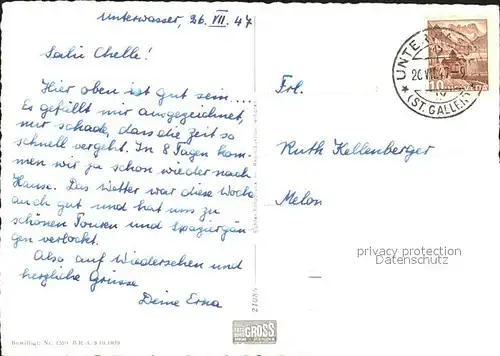 Unterwasser, 26. VII. 47
Salü Chelle!
Hier oben ist gut sein....
Es gefällt mir ausgezeichnet,
nur schade, dass die Zeit so
schnell vergeht. In 8 Tagen kom-
men wir ja schon wieder nach
Hause. Das Wetter war diese Woche
auch gut und hat uns zu
schönen Touren und Spaziergän-
gen verlockt.
Also auf Wiedersehen und
herzliche Grüsse
Deine Erna
Bewilligt Nr.
GROSS
UNTE
26.VII.47
(ST. GALLEN)
10
Frl.
Ruth Kellenberger
Melon
privacy protection
Datenschutz